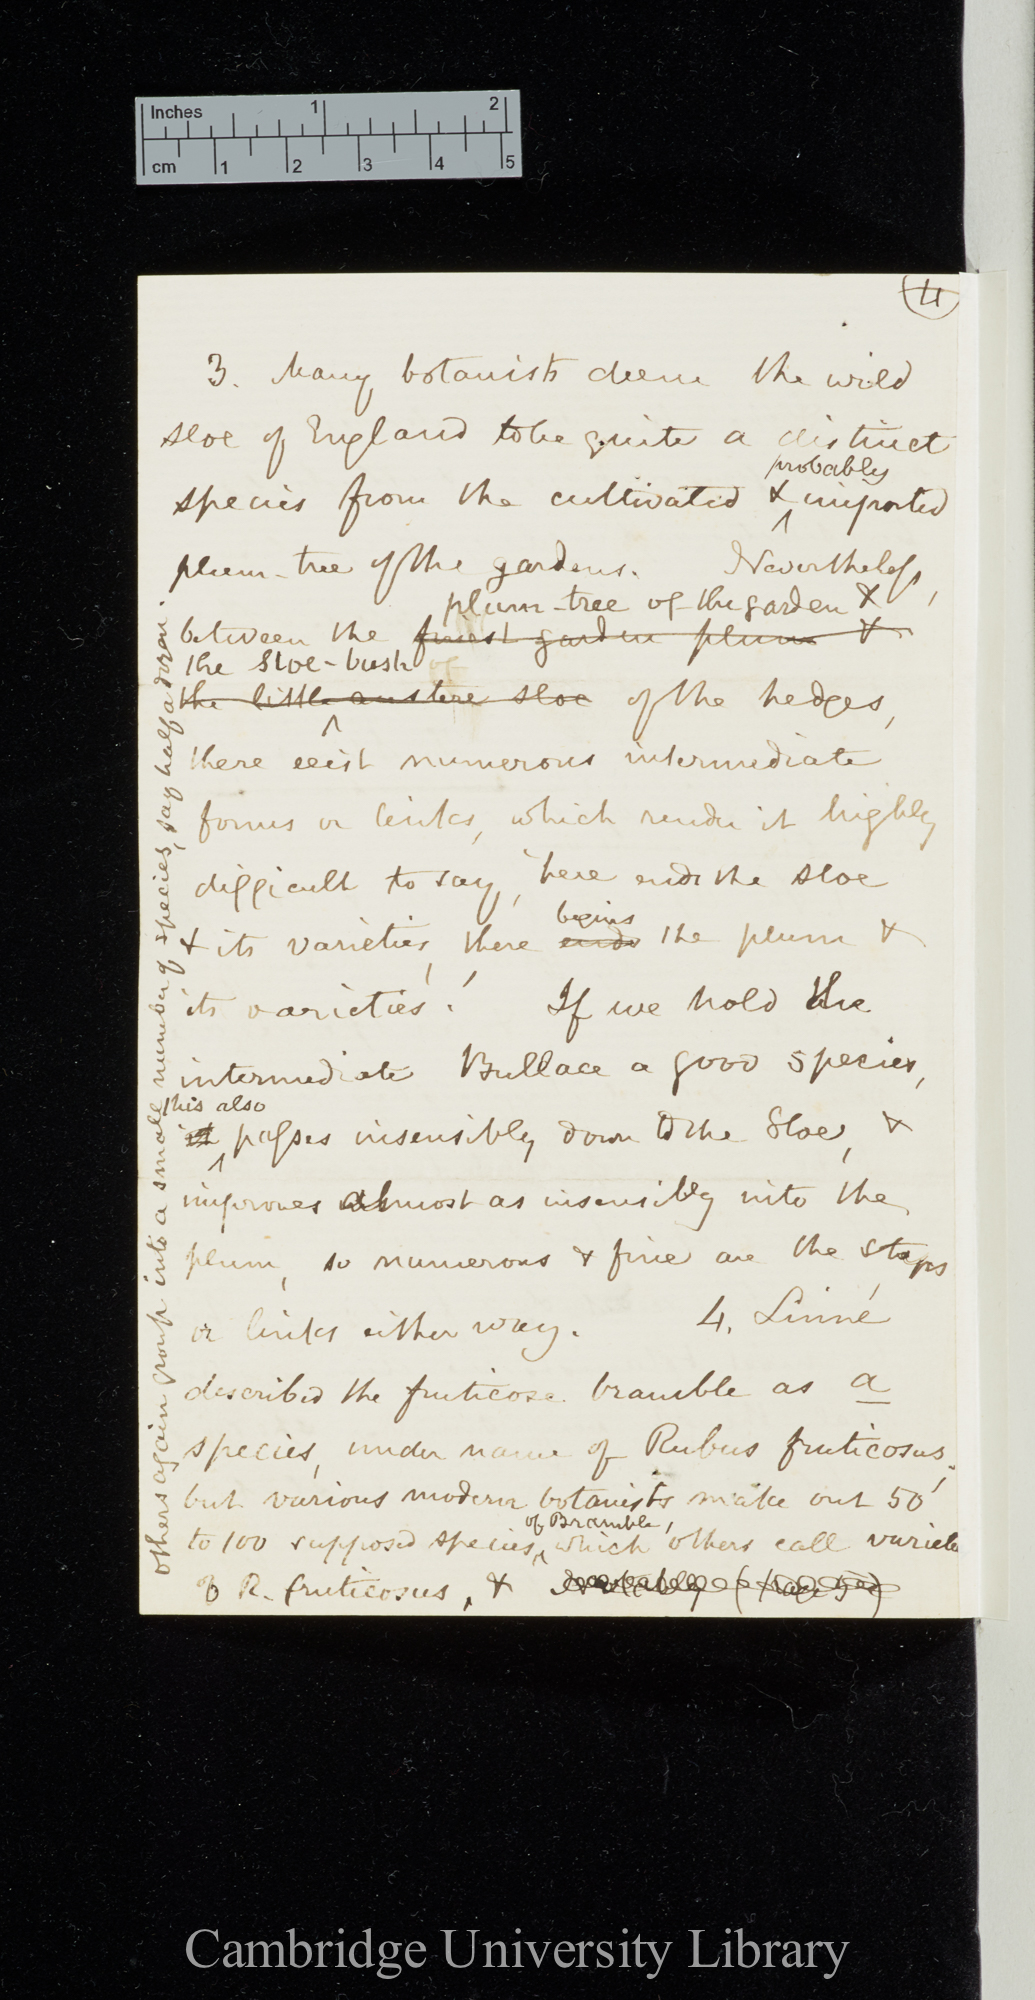 Inches 1 2
cm 1 2 3 4 5
4
3. Many botanists deem the wild
sloe of England to be quite a distinct
probably
species from the cultivated & imported
plum-tree of the gardens. Nevertheless,
plum-tree of the garden &
between the finest garden plum &
the Sloe-bush of
the little austere sloe of the hedges,
there exist numerous intermediate
forms or links, which render it highly
difficult to say, 'here ends the sloe
begins
& its varieties, there ends the plum &
its varieties'. If we hold the
intermediate Bullace a good species,
this also
it passes insensibly down to the Sloe, &
improves almost as insensibly into the
plum, so numerous & fine are the steps
or links either way. 4. Linné
described the fruticose bramble as a
species, under name of Rubus fruticosus;
but various modern botanists make out 50
of Bramble,
to 100 supposed species, which others call varieties
of R. fruticosus, &
others again group into a small number of species, say half a dozen.
Cambridge University Library